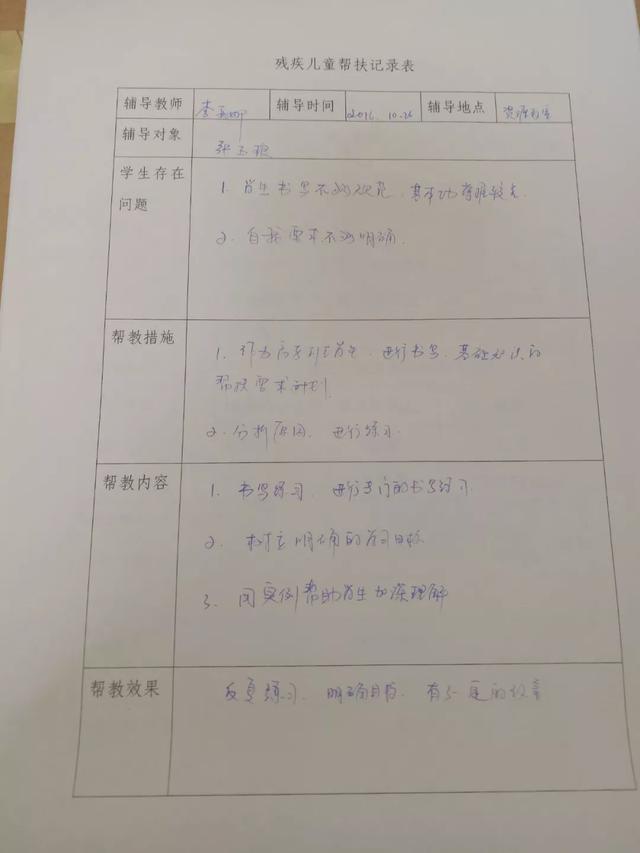 残疾儿童帮扶记录表
辅导教师 李 辅导时间 2016.10.26 辅导地点 资源教室
辅导对象 张玉
学生存在问题
1. 学生书写不够规范，基本功掌握较差
2. 自我要求不够明确.
帮教措施
1. 进行书写、基础知识的
帮扶要求计划.
2. 分析原因、进行练习.
帮教内容
1. 书写练习，进行专门的书写练习.
2. 树立明确的学习目标
3. 用实例帮助学生加深理解
帮教效果
反复练习、明确目标、有了一定的改善